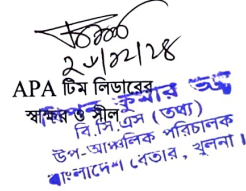 ২৮/১২/২৪
APA টিম লিডারের
স্বাক্ষর ও সীল
কুমার
বি.সি.এস (তথ্য)
উপ-আঞ্চলিক পরিচালক
বাংলাদেশ বেতার, খুলনা।